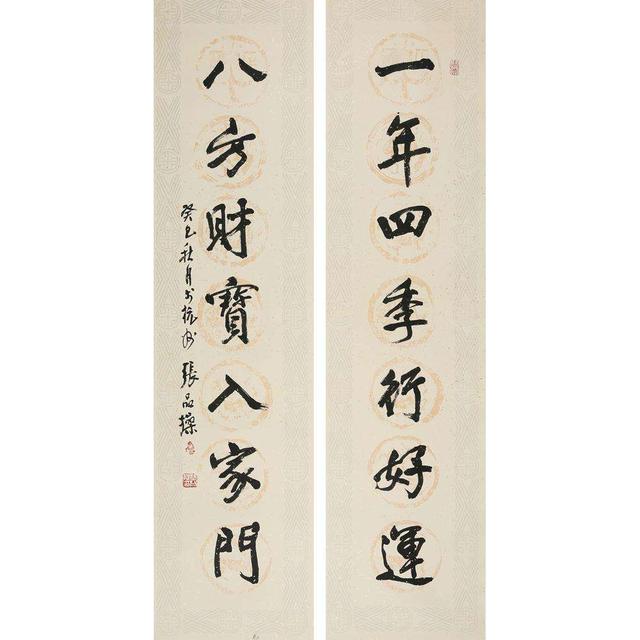 一年四季行好運
八方財寶入家門
癸巳秋月於杭州 張品操